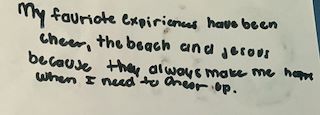 My fauriote expiriences have been
cheer, the beach and jesous
because they always make me happy
when I need to cheer up.